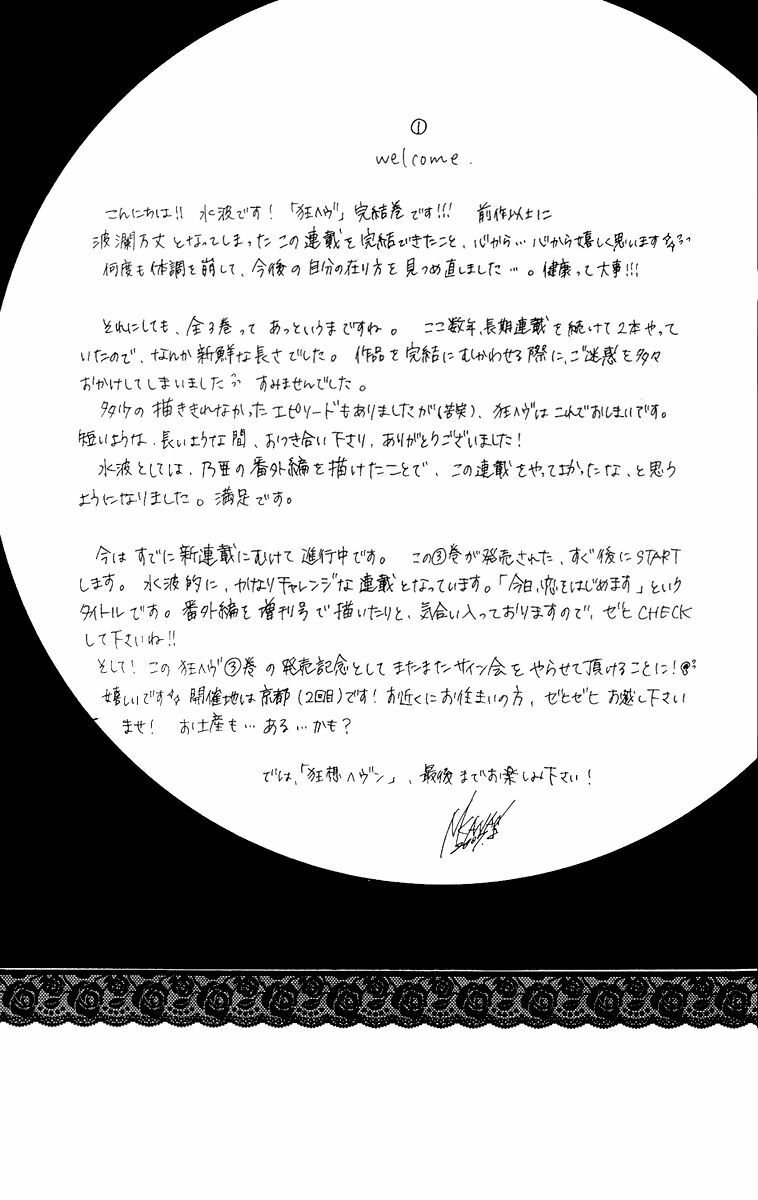 ①
welcome.
こんにちは!! 水波です! 「狂ヘヴ」完結巻です!!! 前作以上に
波瀾万丈となってしまったこの連載を完結できたこと、心から…心から嬉しく思います
何度も体調を崩して、今後の自分の在り方を見つめ直しました…。健康って大事!!!
それにしても、全3巻って あっというまですね。 ここ数年、長期連載を続けて2本やって
いたので、なんか新鮮な長さでした。 作品を完結にむかわせる際に、ご迷惑を多々
おかけしてしまいました すみませんでした。
多少の描ききれなかったエピソードもありましたが(苦笑)、狂ヘヴはこれでおしまいです。
短いような、長いような間、おつき合い下さり、ありがとうございました!
水波としては、乃亜の番外編を描けたことで、この連載をやってよかったな、と思う
ようになりました。満足です。
今はすでに新連載にむけて進行中です。 この③巻が発売された、すぐ後にSTART
します。水波的に、かなりチャレンジな連載となっています。「今日、恋をはじめます」という
タイトルです。番外編を増刊号で描いたりと、気合い入っておりますので、ぜひCHECK
して下さいね!!
そして! この狂ヘヴ③巻の発売記念としてまたまたサイン会をやらせて頂けることに!
嬉しいです 開催地は京都(2回目)です! お近くにお住まいの方、ぜひぜひお越し下さい
ませ! お土産も…ある…かも?
では、「狂想ヘヴン」、最後までお楽しみ下さい!